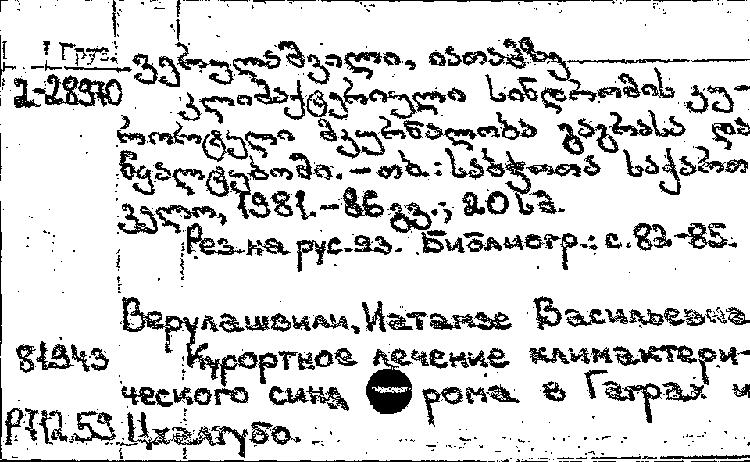 Груз.
ვერულაშვილი, იათამზე
2-28970
კლიმაქტერიული სინდრომის კუ-
რორტული მკურნალობა გაგრასა და
წყალტუბოში. – თბ.: საბჭოთა საქართ
ველო, 1981. – 86 გვ.; 20 სმ.
Рез. на рус. яз. Библиогр.: с. 82-85.
Верулашвили, Иатамзе Васильевна
81943 Курортное лечение климактери-
ческого синд рома в Гаграх и
Р712.59 Цхалтубо.